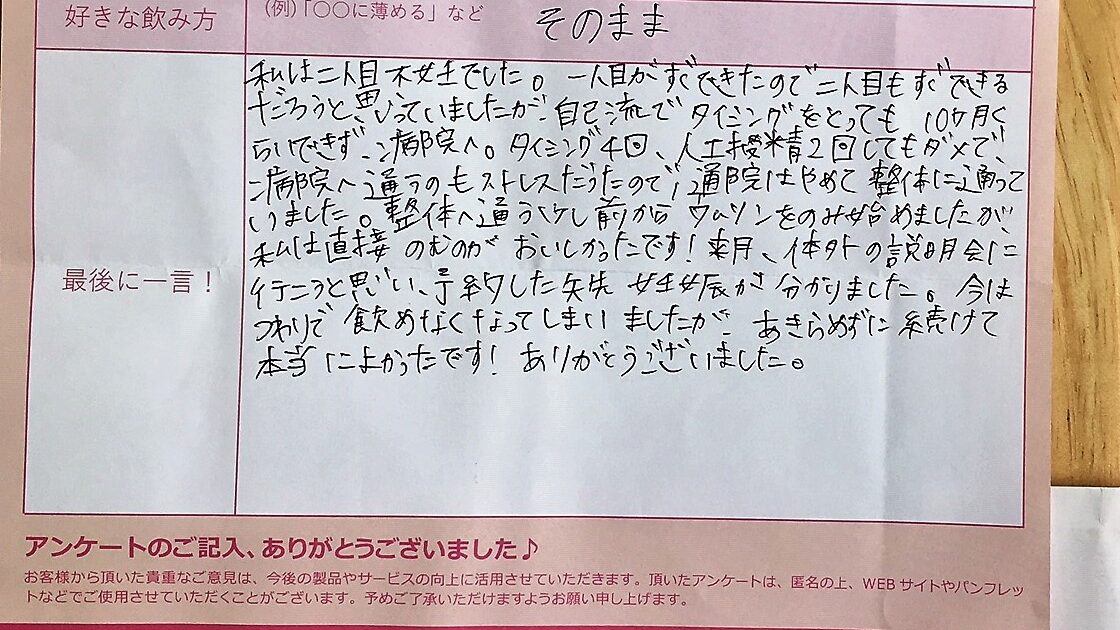 好きな飲み方
(例)「○○に薄める」など
そのまま
私は二人目不妊でした。一人目がすぐできたので二人目もすぐできる
だろうと、思っていましたが、自己流でタイミングをとっても 10ヶ月く
らいできず、病院へ。タイミング4回、人工授精2回してもダメで、
病院へ通うのもストレスだったので、通院はやめて 整体に通って
いました。整体へ通う少し前から マムソンをのみ始めましたが、
私は直接 のむのが おいしかったです! 来月、体外の説明会に
行こうと思い、予約した矢先 妊娠が 分かりました。今は
つわりで 飲めなくなってしまい ましたが、あきらめずに続けて
本当によかったです! ありがとうございました。
最後に一言!
アンケートのご記入、ありがとうございました♪
お客様から頂いた貴重なご意見は、今後の製品やサービスの向上に活用させていただきます。頂いたアンケートは、匿名の上、WEBサイトやパンフレッ
トなどでご使用させていただくことがございます。予めご了承いただけますようお願い申し上げます。